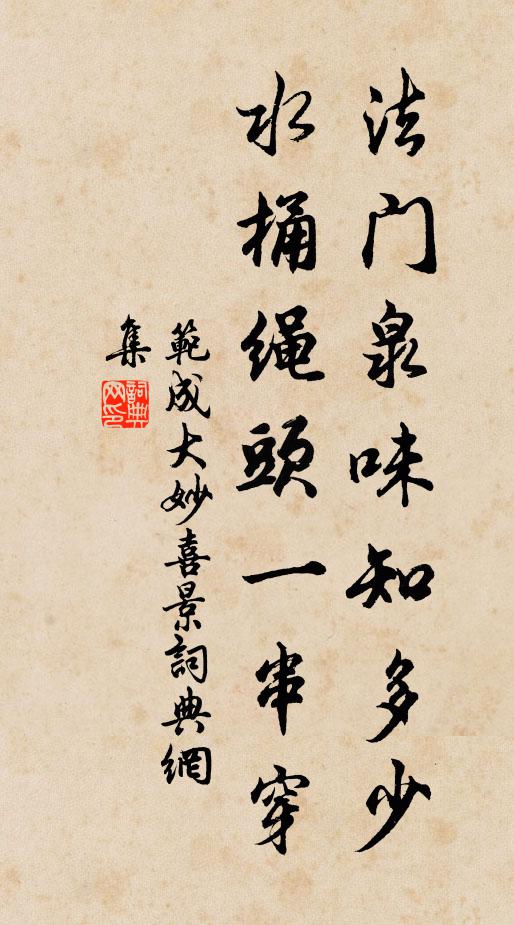 法门泉味知多少
水桶绳頭一串穿
範成大妙喜景詞典網
集
詞典网印